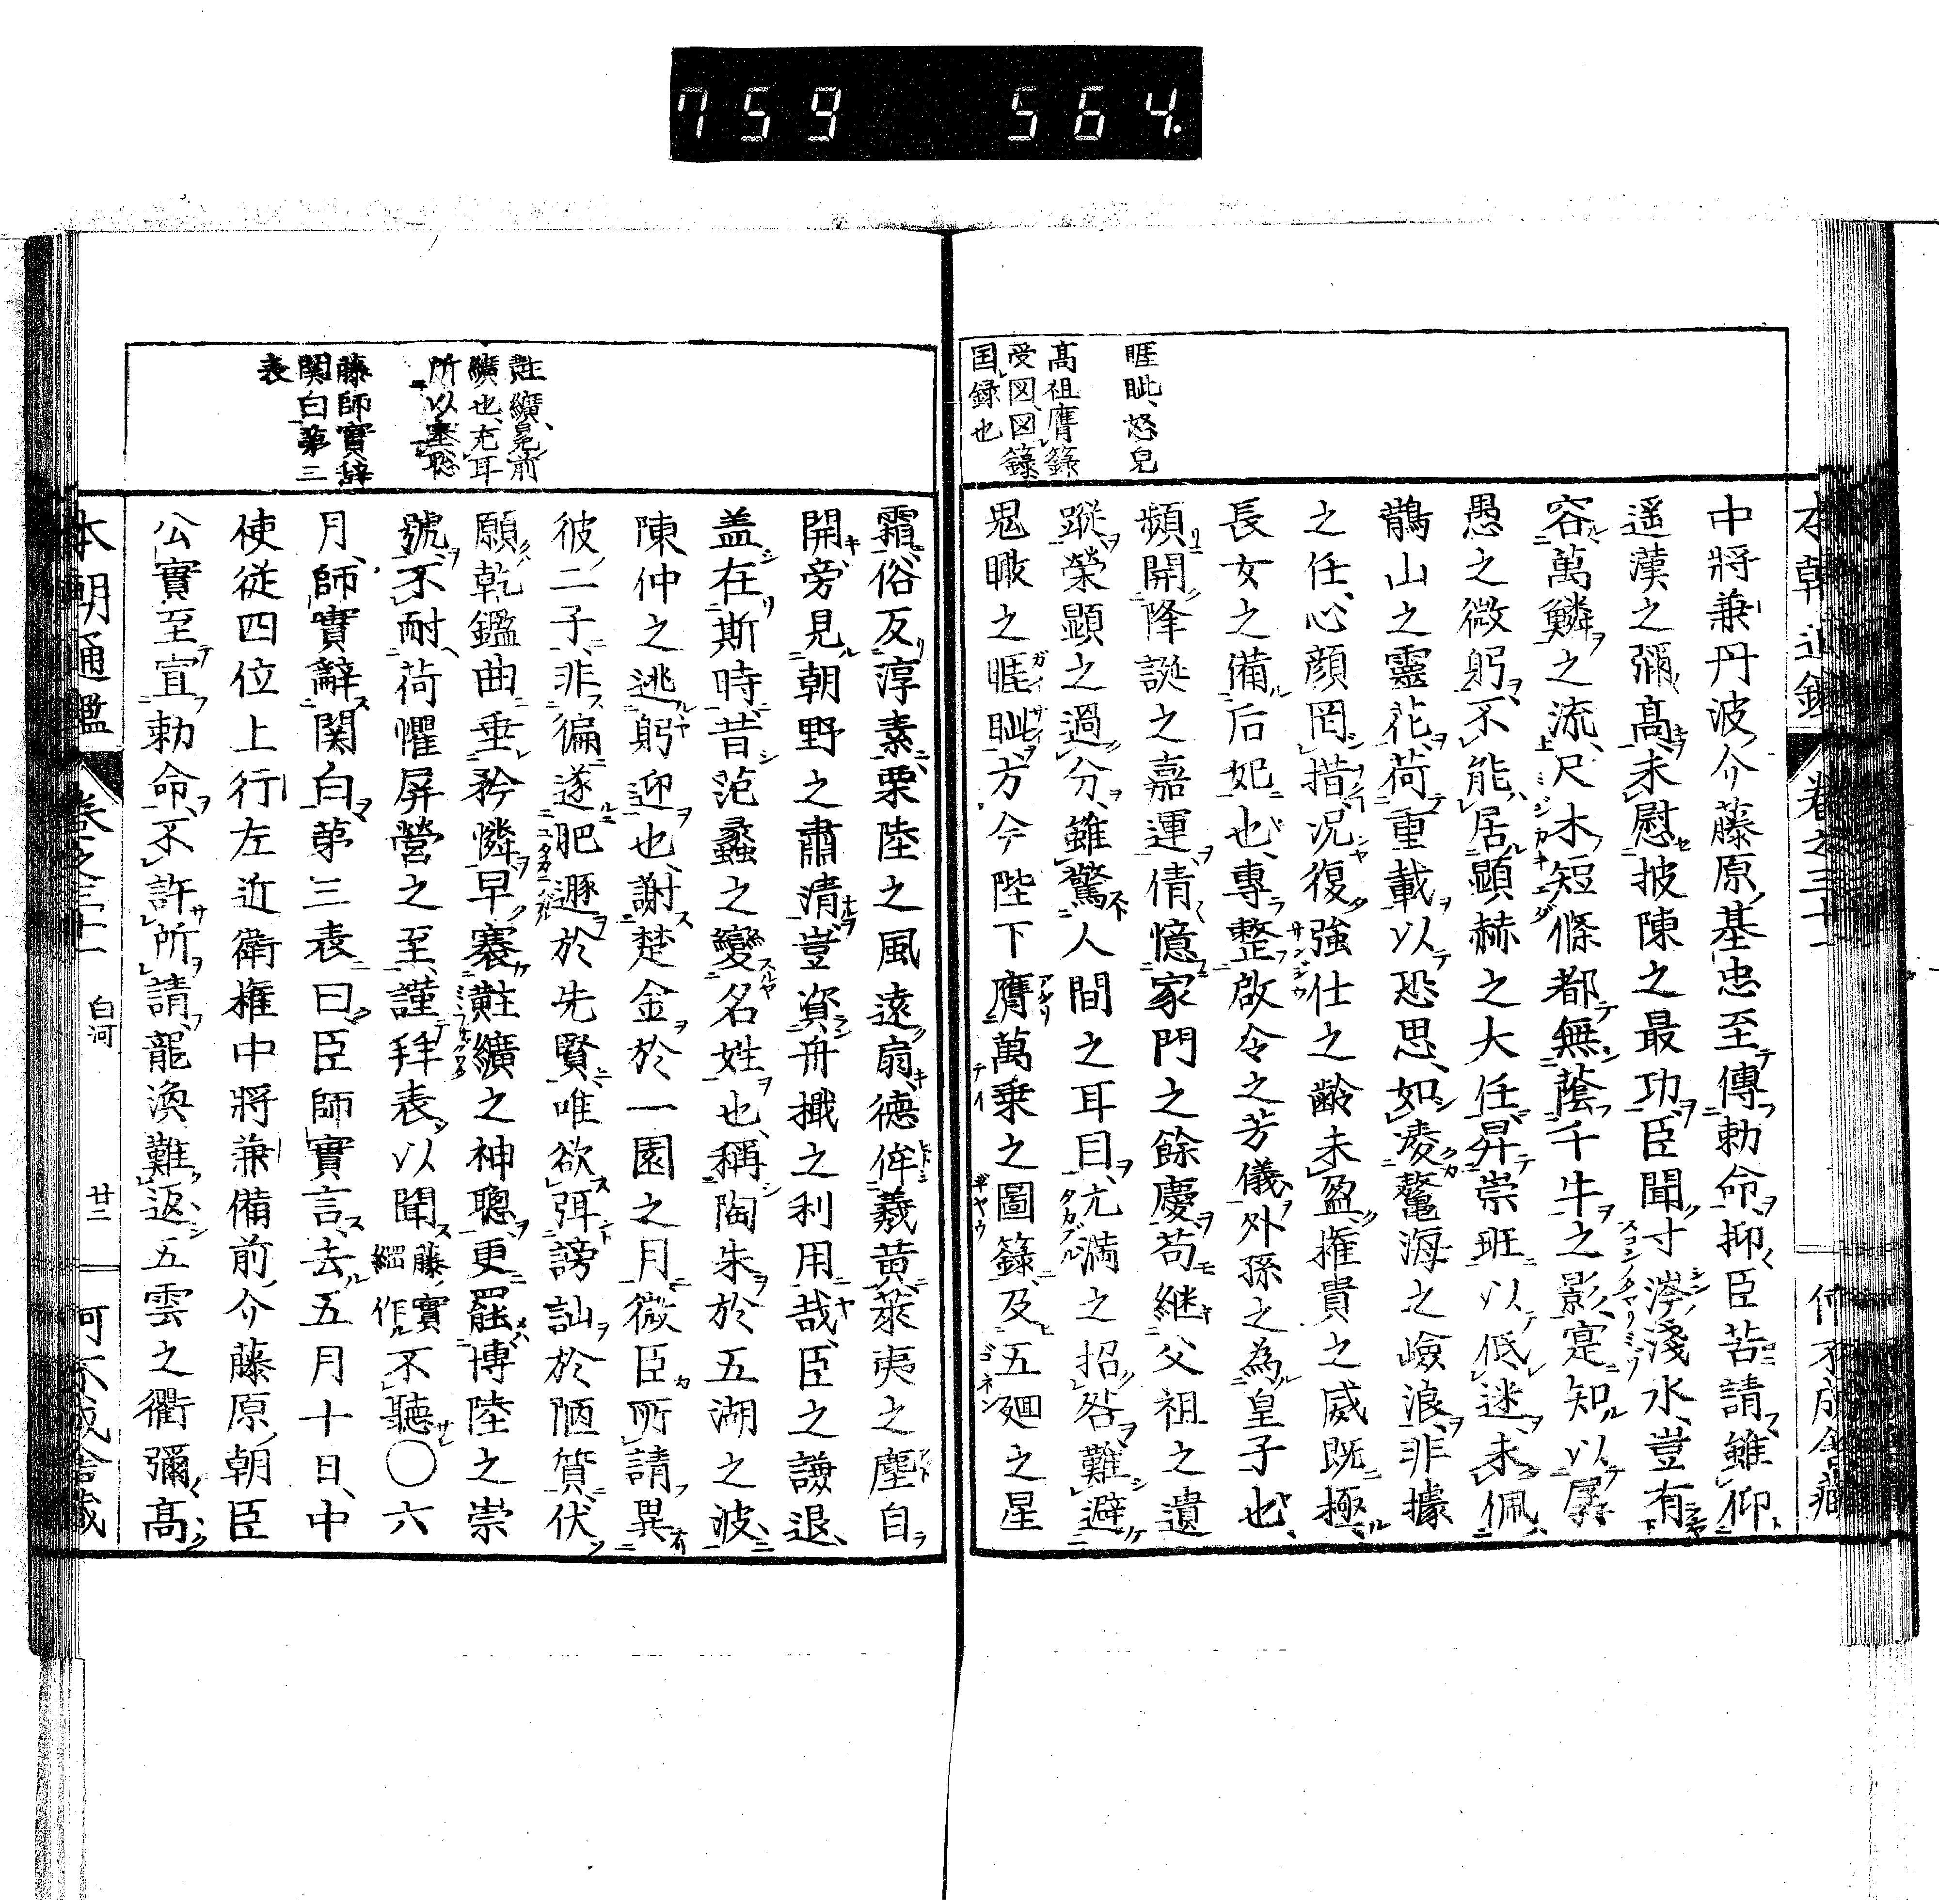 759 564.
睚眦、怒皃
高祖膺籙
受図、図籙
国録也
中將兼丹波介藤原基忠至傳勅命、抑臣苦請雖仰
遥漢之彌高、未慰披陳之最功、臣聞寸涔淺水、豈有
容萬鱗之流、尺木短條都無蔭千牛之影、寔知以孱
愚之微躬、不能居顯赫之大任、昇崇班以低迷、未佩
鵲山之靈花、荷重載以恐思、如凌鼇海之嶮浪、非據
之任、心顔罔措、況復強仕之齡未盈、權貴之威既極、
長女之備后妃也、專整啟令之芳儀、外孫之為皇子也、
頻開降誕之嘉運、倩憶家門之餘慶、苟継父祖之遺
蹤、榮顯之過分、雖驚人間之耳目、亢満之招咎、難避
鬼瞰之睚眦、方今陛下膺萬乗之圖籙、及五廻之星
霜、俗反淳素、栗陸之風遠扇、德侔羲黄、萊夷之塵自
開、旁見朝野之肅清、豈資舟檝之利用哉、臣之謙退、
盖在斯時、昔范蠡之變名姓也、稱陶朱於五湖之波、
陳仲之逃躬迎也、謝楚金於一園之月、微臣所請異
彼二子、非徧遂肥遯於先賢、唯欲弭謗訕於陋質、伏
願乾鑑曲垂矜憐、早褰黈纊之神聰、更罷博陸之崇
號、不耐荷懼屏營之至、謹拜表以聞 藤實綱作 不聽○六
月、師實辭関白第三表曰臣師實言、去五月十日、中
使従四位上行左近衛権中將兼備前介藤原朝臣
公實至宣勅命、不許所請、龍渙難返五雲之衢彌高、
黈纊、冕前
纊也、充耳
所以塞聡
藤師實辞
関白第三
表
本朝通鑑 卷之三十一 白河 廿二